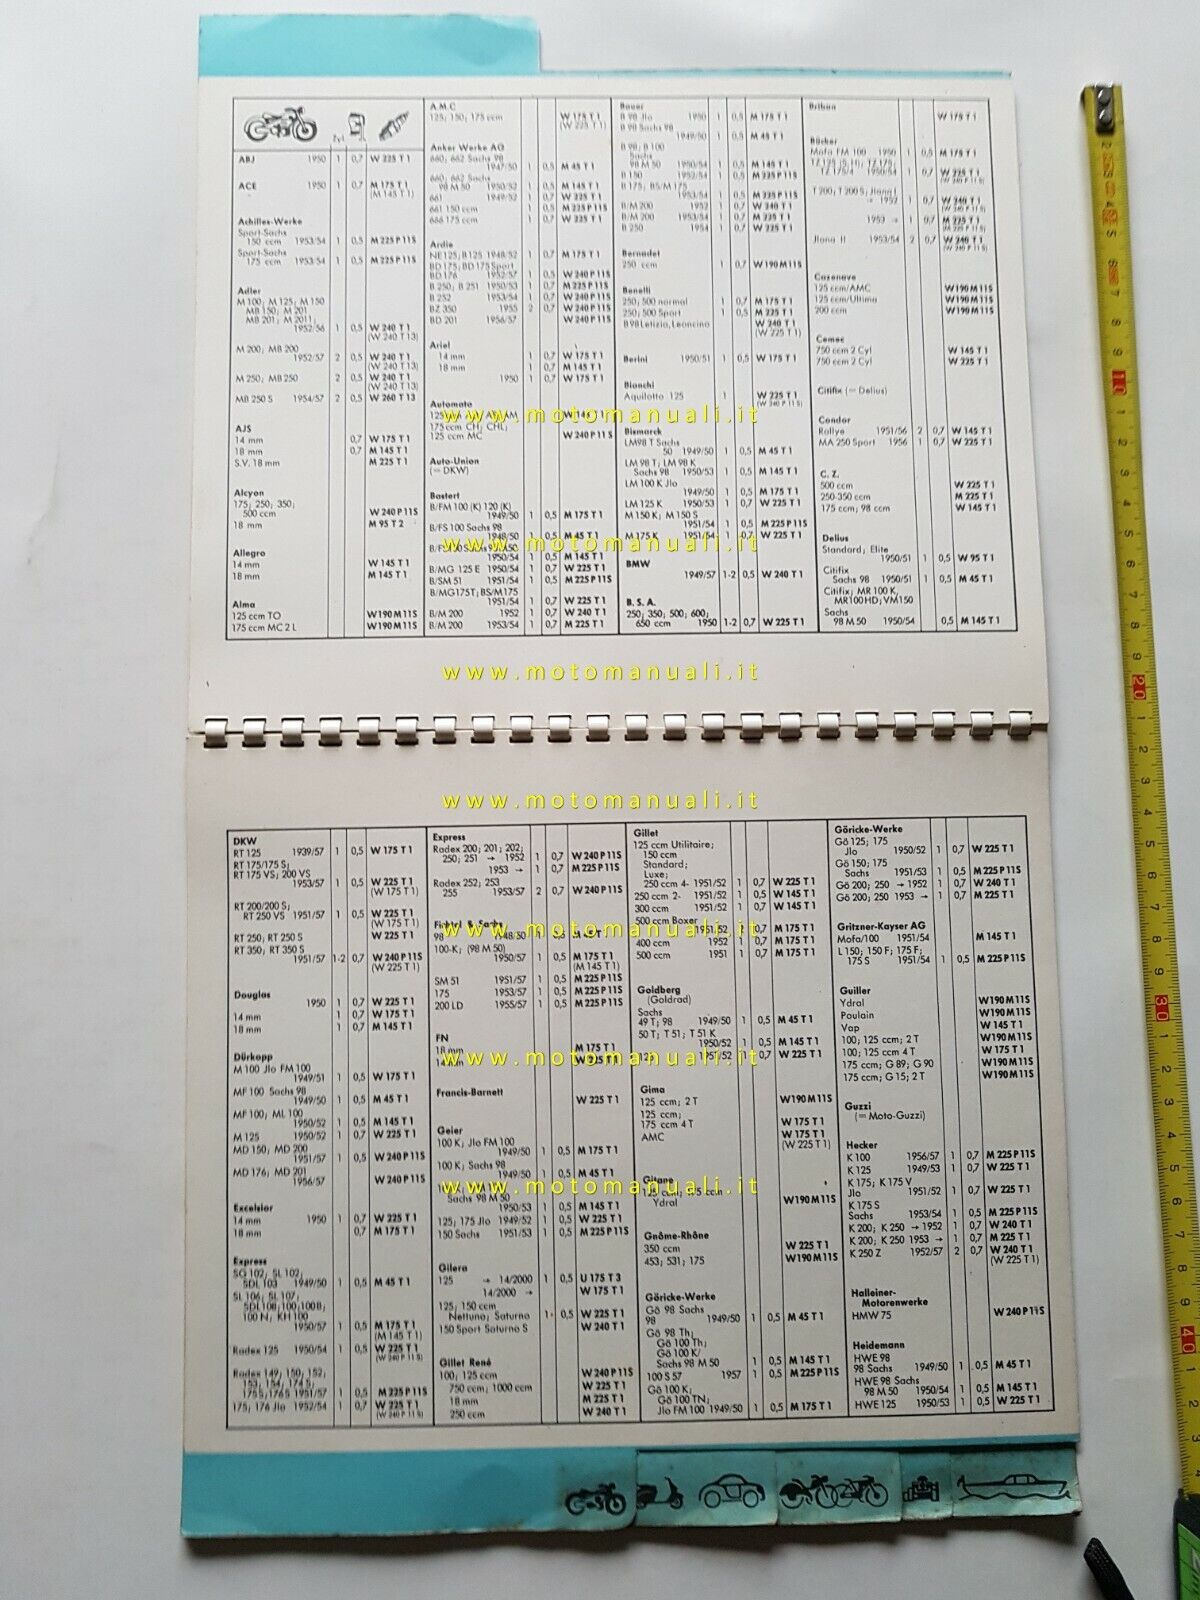 Zyl.
ABJ 1950 1 0,7 W 225 T 1
ACE 1950 1 0,7 M 175 T 1
(M 145 T 1)
Achilles-Werke
Sport-Sachs
150 ccm 1953/54 1 0,5 M 225 P 11 S
Sport-Sachs
175 ccm 1953/54 1 0,5 M 225 P 11 S
Adler
M 100; M 125; M 150
MB 150; M 201
MB 201; M 2011;
1952/56 1 0,5 W 240 T 1
(W 240 T 13)
M 200; MB 200
1952/57 2 0,5 W 240 T 1
(W 240 T 13)
M 250; MB 250 2 0,5 W 240 T 1
(W 240 T 13)
MB 250 S 1954/57 2 0,5 W 260 T 13
AJS
14 mm 0,7 W 175 T 1
18 mm 0,7 M 145 T 1
S.V. 18 mm M 225 T 1
Alcyon
175; 250; 350;
500 ccm W 240 P 11 S
18 mm M 95 T 2
Allegro
14 mm W 145 T 1
18 mm M 145 T 1
Alma
125 ccm TO W 190 M 11 S
175 ccm MC 2 L W 190 M 11 S
A.M.C
125; 150; 175 ccm W 175 T 1
(W 225 T 1)
Anker Werke AG
660; 662 Sachs 98
1947/50 1 0,5 M 45 T 1
660; 662 Sachs
98 M 50 1950/52 1 0,5 M 145 T 1
661 1949/52 1 0,7 W 225 T 1
661 150 ccm 1 0,5 M 225 P 11 S
666 175 ccm 1 0,7 W 225 T 1
Ardie
NE 125; B 125 1948/52 1 0,7 M 175 T 1
BD 175; BD 175 Sport
BD 176 1952/57 1 0,5 W 240 P 11 S
B 250; B 251 1950/53 1 0,5 M 225 P 11 S
B 252 1953/54 1 0,7 W 240 P 11 S
BZ 350 1955 2 0,7 W 240 P 11 S
BD 201 1956/57 W 240 P 11 S
Ariel
14 mm 1 0,7 W 175 T 1
18 mm 1 0,7 M 145 T 1
1950 1 0,7 W 175 T 1
Automoto
175 ccm CH; CHL;
125 ccm MC W 240 P 11 S
Auto-Union
(= DKW)
Bastert
B/FM 100 (K) 120 (K)
1949/50 1 0,5 M 175 T 1
B/FS 100 Sachs 98
1948/50 1 0,5 M 45 T 1
1950/54 1 0,5 M 145 T 1
B/MG 125 E 1950/54 1 0,7 W 225 T 1
B/SM 51 1951/54 1 0,5 M 225 P 11 S
B/MG175T; BS/M175
1951/54 1 0,7 W 225 T 1
B/M 200 1952 1 0,7 W 240 T 1
B/M 200 1953/54 1 0,7 M 225 T 1
Bauer
B 98 Jlo 1950 1 0,5 M 175 T 1
B 98 Sachs 98
1949/50 1 0,5 M 45 T 1
B 98; B 100
Sachs
98 M 50 1950/54 1 0,5 M 145 T 1
B 150 1952/54 1 0,5 M 225 P 11 S
B 175; BS/M 175
1953/54 1 0,5 M 225 P 11 S
B/M 200 1952 1 0,7 W 240 T 1
B/M 200 1953/54 1 0,7 M 225 T 1
B 250 1954 1 0,7 W 225 T 1
Bernardet
250 ccm 1 0,7 W 190 M 11 S
Benelli
250; 500 normal 1 0,7 M 175 T 1
250; 500 Sport 1 0,5 M 225 T 1
B 98 Letizia, Leoncino W 240 T 1
(W 225 T 1)
Berini 1950/51 1 0,5 W 175 T 1
Bianchi
Aquilotto 125 1 W 225 T 1
(W 240 P 11 S)
Bismarck
LM98 T Sachs
50 1949/50 1 0,5 M 45 T 1
LM 98 T; LM 98 K
Sachs 98 1950/53 1 0,5 M 145 T 1
LM 100 K Jlo
1949/50 1 0,5 M 175 T 1
LM 125 K 1950/53 1 0,7 W 225 T 1
M 150 K; M 150 S
1951/54 1 0,5 M 225 P 11 S
M 175 K 1951/54 1 0,7 W 225 T 1
BMW
1949/57 1-2 0,5 W 240 T 1
B. S. A.
250; 350; 500; 600;
650 ccm 1950 1-2 0,7 W 225 T 1
Briban W 175 T 1
Bücker
Mofa FM 100 1950 1 0,5 M 175 T 1
TZ 175/4 1950/54 1 0,7 W 225 T 1
(W 240 P 11 S)
T 200; T 200 S; Jlona I
→ 1952 1 0,7 W 240 T 1
(W 240 P 11 S)
1953 → 1 0,7 M 225 T 1
(M 225 P 11 S)
Jlona II 1953/54 2 0,7 W 240 T 1
(W 240 P 11 S)
Cazenave
125 ccm/AMC W 190 M 11 S
125 ccm/Ultima W 190 M 11 S
200 ccm W 190 M 11 S
Cemec
750 ccm 2 Cyl W 145 T 1
750 ccm 2 Cyl W 225 T 1
Citifix (= Delius)
Condor
Rallye 1951/56 2 0,7 W 145 T 1
MA 250 Sport 1956 1 0,7 W 225 T 1
C. Z.
500 ccm W 225 T 1
250-350 ccm M 225 T 1
175 ccm; 98 ccm W 145 T 1
Delius
Standard; Elite
1950/51 1 0,5 W 95 T 1
Citifix
Sachs 98 1950/51 1 0,5 M 45 T 1
Citifix; MR 100 K,
MR100HD; VM150
Sachs
98 M 50 1950/54 0,5 M 145 T 1
www.motomanuali.it
www.motomanuali.it
www.motomanuali.it
www.motomanuali.it
DKW
RT 125 1939/57 1 0,5 W 175 T 1
RT 175/175 S;
RT 175 VS; 200 VS
1953/57 1 0,5 W 225 T 1
(W 175 T 1)
RT 200/200 S;
RT 250 VS 1951/57 1 0,5 W 225 T 1
(W 175 T 1)
RT 250; RT 250 S W 225 T 1
RT 350; RT 350 S
1951/57 1-2 0,7 W 240 P 11 S
(W 225 T 1)
Douglas
1950 1 0,7 W 225 T 1
14 mm 1 0,7 W 175 T 1
18 mm 1 0,7 M 145 T 1
Dürkopp
M 100 Jlo FM 100
1949/51 1 0,5 W 175 T 1
MF 100 Sachs 98
1949/50 1 0,5 M 45 T 1
MF 100; ML 100
1950/52 1 0,5 M 145 T 1
M 125 1950/52 1 0,7 W 225 T 1
MD 150; MD 200
1951/57 1 0,5 W 240 P 11 S
MD 176; MD 201
1956/57 W 240 P 11 S
Excelsior
14 mm 1950 1 0,7 W 225 T 1
18 mm 0,7 M 175 T 1
Express
SG 102; SL 102;
SDL 103 1949/50 1 0,5 M 45 T 1
SL 106, SL 107,
SDL108; 100; 100B;
100 N; KH 100
1950/57 1 0,5 M 175 T 1
(M 145 T 1)
Radex 125 1950/54 1 0,5 W 225 T 1
(W 240 P 11 S)
Radex 149; 150; 152;
153, 154; 174 S;
175S; 176S 1951/57 1 0,5 M 225 P 11 S
175; 176 Jlo 1952/54 1 0,7 W 225 T 1
(W 240 P 11 S)
Express
Radex 200; 201; 202;
250; 251 → 1952 1 0,7 W 240 P 11 S
1953 → 1 0,7 M 225 P 11 S
Radex 252; 253
255 1953/57 2 0,7 W 240 P 11 S
Fichtel & Sachs
98 1948/50 1 0,5 M 45 T 1
100-K; (98 M 50)
1950/57 1 0,5 M 175 T 1
(M 145 T 1)
SM 51 1951/57 1 0,5 M 225 P 11 S
175 1953/57 1 0,5 M 225 P 11 S
200 LD 1955/57 1 0,5 M 225 P 11 S
FN
18 mm M 175 T 1
14 mm W 225 T 1
Francis-Barnett
W 225 T 1
Geier
100 K; Jlo FM 100
1949/50 1 0,5 M 175 T 1
100 K; Sachs 98
1949/50 1 0,5 M 45 T 1
Sachs 98 M 50
1950/53 1 0,5 M 145 T 1
125; 175 Jlo 1949/52 1 0,5 W 225 T 1
150 Sachs 1951/53 1 0,5 M 225 P 11 S
Gilera
125 → 14/2000 1 0,5 U 175 T 3
14/2000 → W 175 T 1
125; 150 ccm
Nettuno; Saturno 1 0,5 W 225 T 1
150 Sport Saturno S W 240 T 1
Gillet René
100; 125 ccm W 240 P 11 S
750 ccm; 1000 ccm W 225 T 1
18 mm M 225 T 1
250 ccm W 240 T 1
Gillet
125 ccm Utilitaire;
150 ccm
Standard;
Luxe;
250 ccm 4- 1951/52 1 0,7 W 225 T 1
250 ccm 2- 1951/52 1 0,5 W 145 T 1
300 ccm 1951/52 1 0,7 W 145 T 1
500 ccm Boxer
1951/52 1 0,7 M 175 T 1
400 ccm 1952 1 0,7 M 175 T 1
500 ccm 1951 1 0,7 M 175 T 1
Goldberg
(Goldrad)
Sachs
49 T; 98 1949/50 1 0,5 M 45 T 1
50 T; T 51; T 51 K
1950/52 1 0,5 M 145 T 1
125 1951/52 1 0,7 W 225 T 1
Gima
125 ccm; 2 T W 190 M 11 S
125 ccm;
175 ccm 4 T W 175 T 1
AMC W 175 T 1
(W 225 T 1)
Gitane
125 ccm; 175 ccm
Ydral W 190 M 11 S
Gnôme-Rhône
350 ccm W 225 T 1
453; 531; 175 W 190 M 11 S
Göricke-Werke
Gö 98 Sachs
98 1949/50 1 0,5 M 45 T 1
Gö 98 Th;
Gö 100 Th;
Gö 100 K/
Sachs 98 M 50 1 0,5 M 145 T 1
100 S 57 1957 1 0,5 M 225 P 11 S
Gö 100 K;
Gö 100 TN;
Jlo FM 100 1949/50 1 0,5 M 175 T 1
Göricke-Werke
Gö 125; 175
Jlo 1950/52 1 0,7 W 225 T 1
Gö 150; 175
Sachs 1951/53 1 0,5 M 225 P 11 S
Gö 200; 250 → 1952 1 0,7 W 240 T 1
Gö 200; 250 1953 → 1 0,7 M 225 T 1
Gritzner-Kayser AG
Mofa/100 1951/54 M 145 T 1
L 150; 150 F; 175 F;
175 S 1951/54 1 0,5 M 225 P 11 S
Guiller
Ydral W 190 M 11 S
Poulain W 190 M 11 S
Vap W 145 T 1
100; 125 ccm; 2 T W 190 M 11 S
100; 125 ccm 4 T W 175 T 1
175 ccm; G 89; G 90 W 190 M 11 S
175 ccm; G 15; 2 T W 190 M 11 S
Guzzi
(= Moto-Guzzi)
Hecker
K 100 1956/57 1 0,7 M 225 P 11 S
K 125 1949/53 1 0,7 W 225 T 1
K 175; K 175 V
Jlo 1951/52 1 0,7 W 225 T 1
K 175 S
Sachs 1953/54 1 0,5 M 225 P 11 S
K 200; K 250 → 1952 1 0,7 W 240 T 1
K 200; K 250 1953 → 1 0,7 M 225 T 1
K 250 Z 1952/57 2 0,7 W 240 T 1
(W 225 T 1)
Halleiner-
Motorenwerke
HMW 75 W 240 P 11 S
Heidemann
HWE 98
98 Sachs 1949/50 1 0,5 M 45 T 1
HWE 98 Sachs
98 M 50 1950/54 1 0,5 M 145 T 1
HWE 125 1950/53 1 0,5 W 225 T 1
www.motomanuali.it
www.motomanuali.it
www.motomanuali.it
10
20
30
40